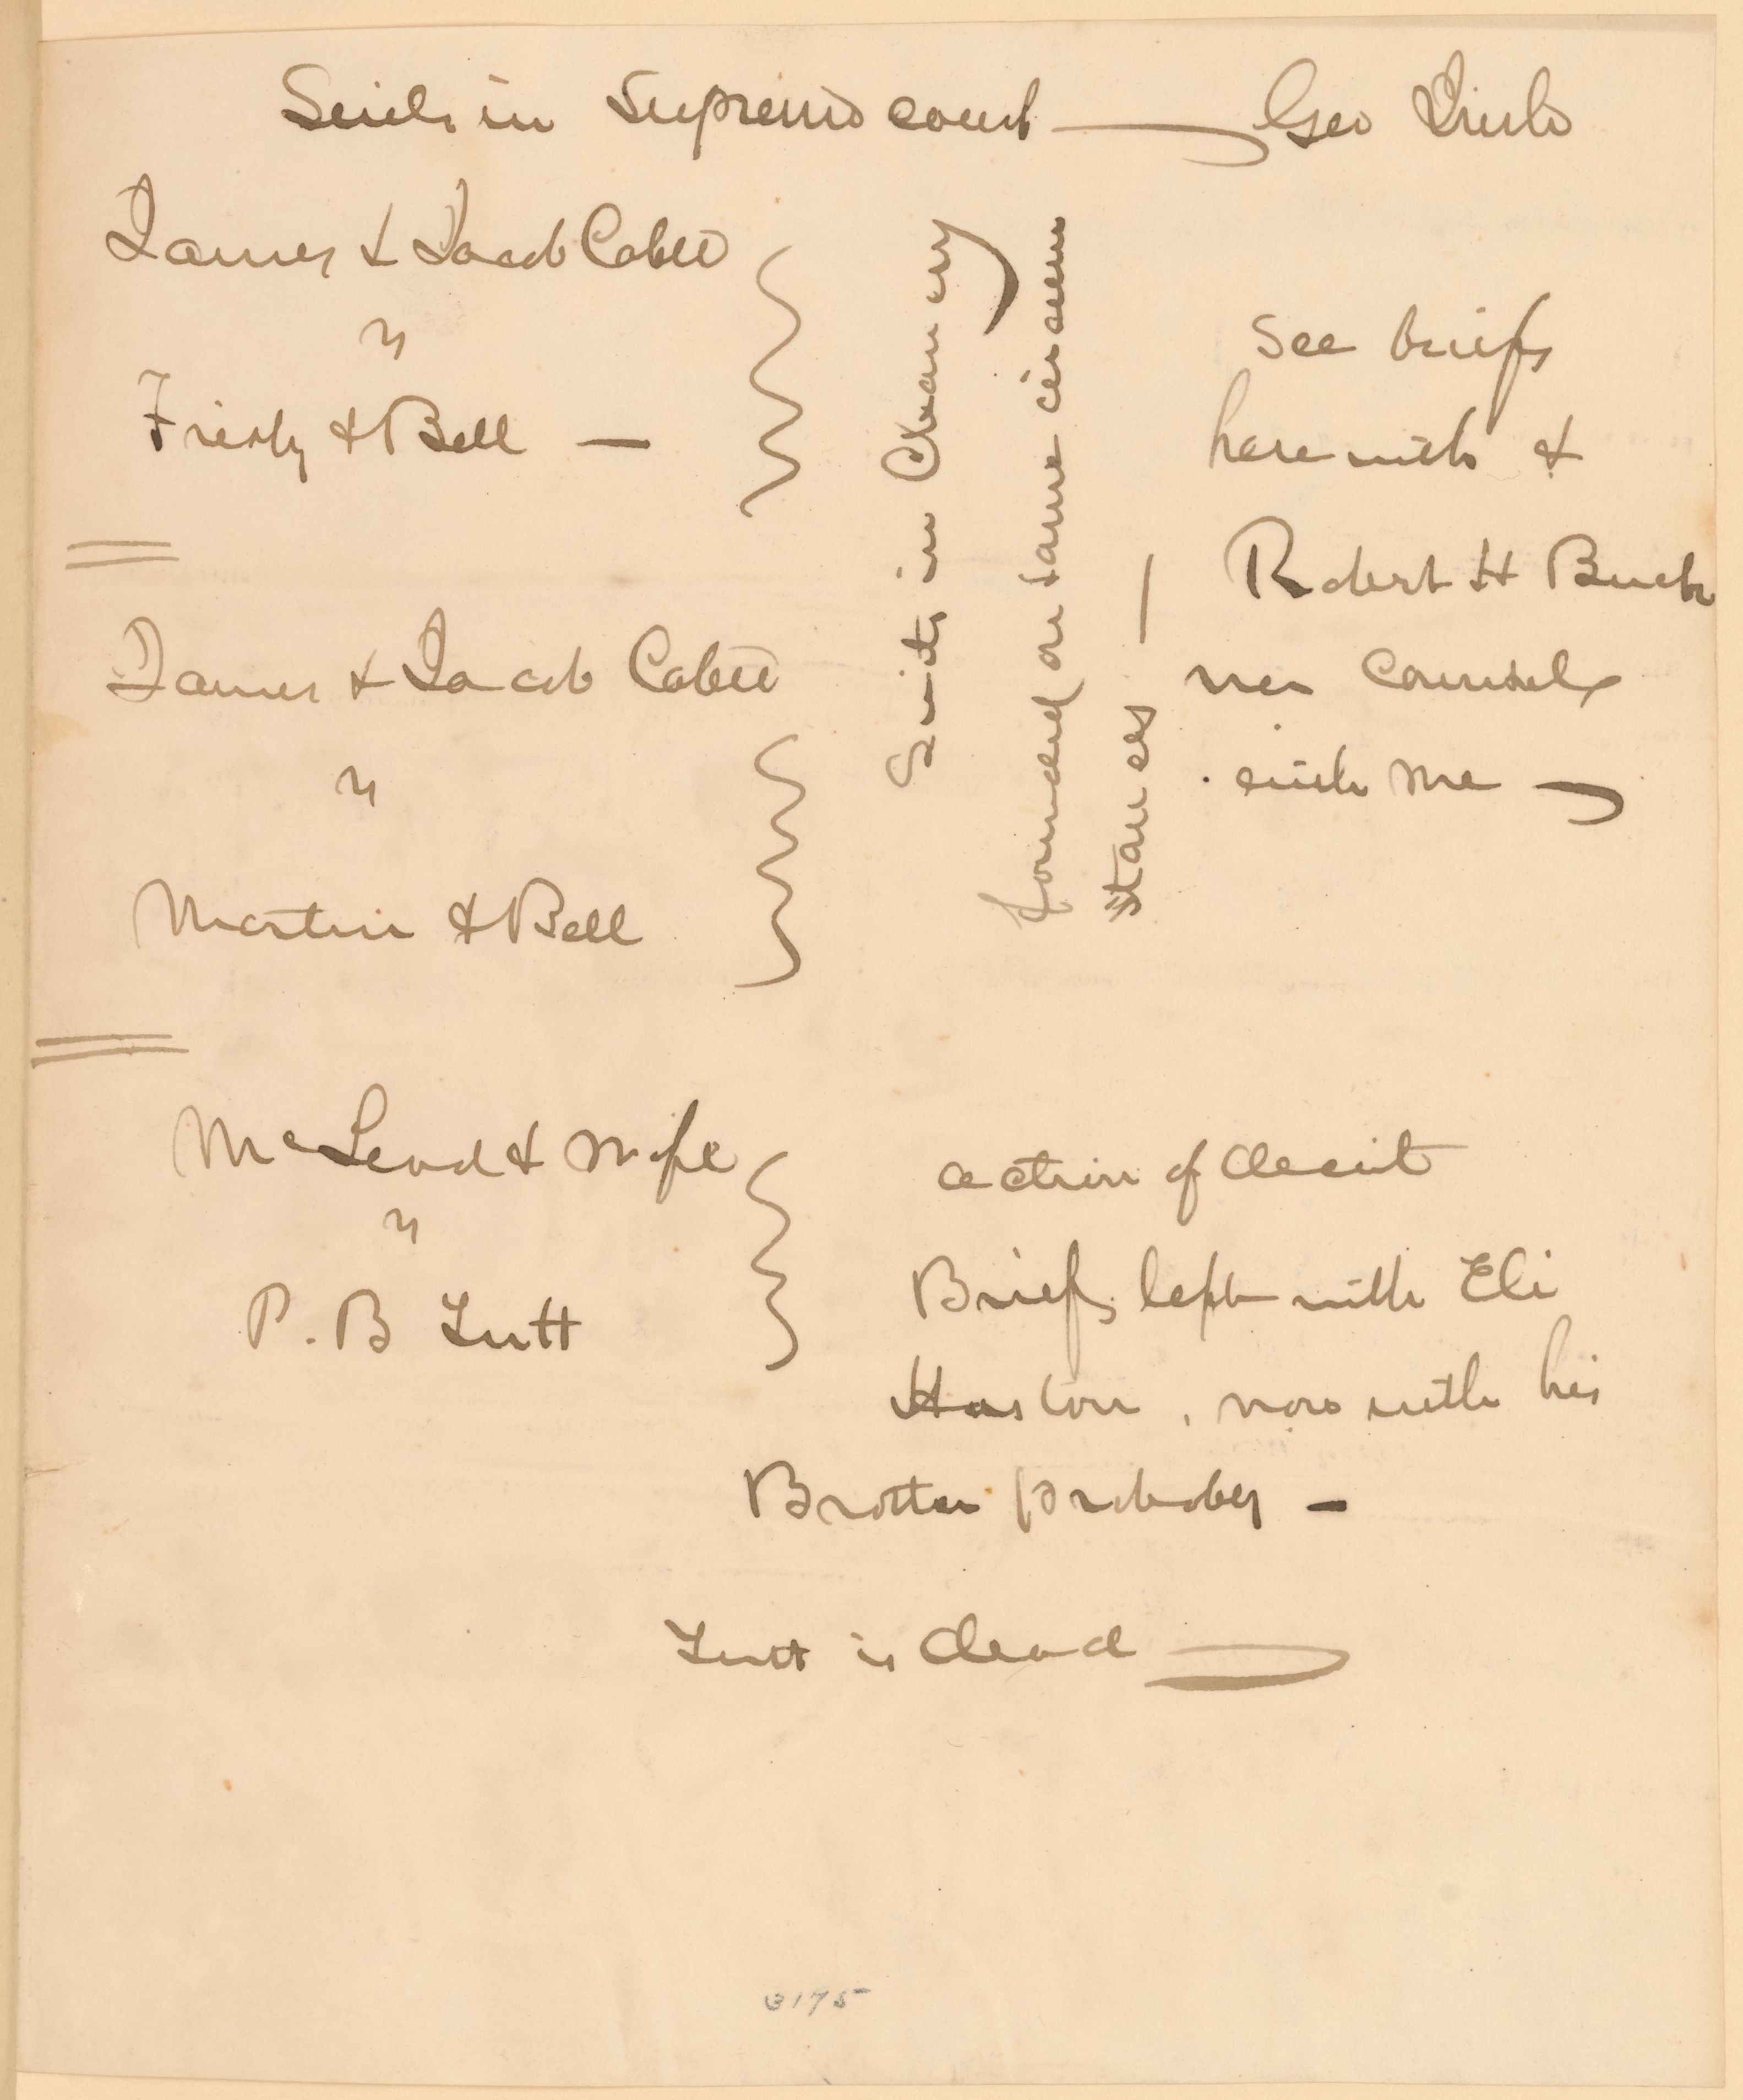 Suits in Supreme court — Geo
James & Jacob Cabell
"
Friend & Bell —
James & Jacob Cabell
"
Martin & Bell
Suits in Chancery
founded on same circum
stances —
See briefs
herewith &
Robert H Buck
was Counsel
with me —
McLeod & wife
"
P. B Tutt
action of deceit
Briefs left with Eli
Huston, now with his
Brother probably —
Tutt is dead
3175